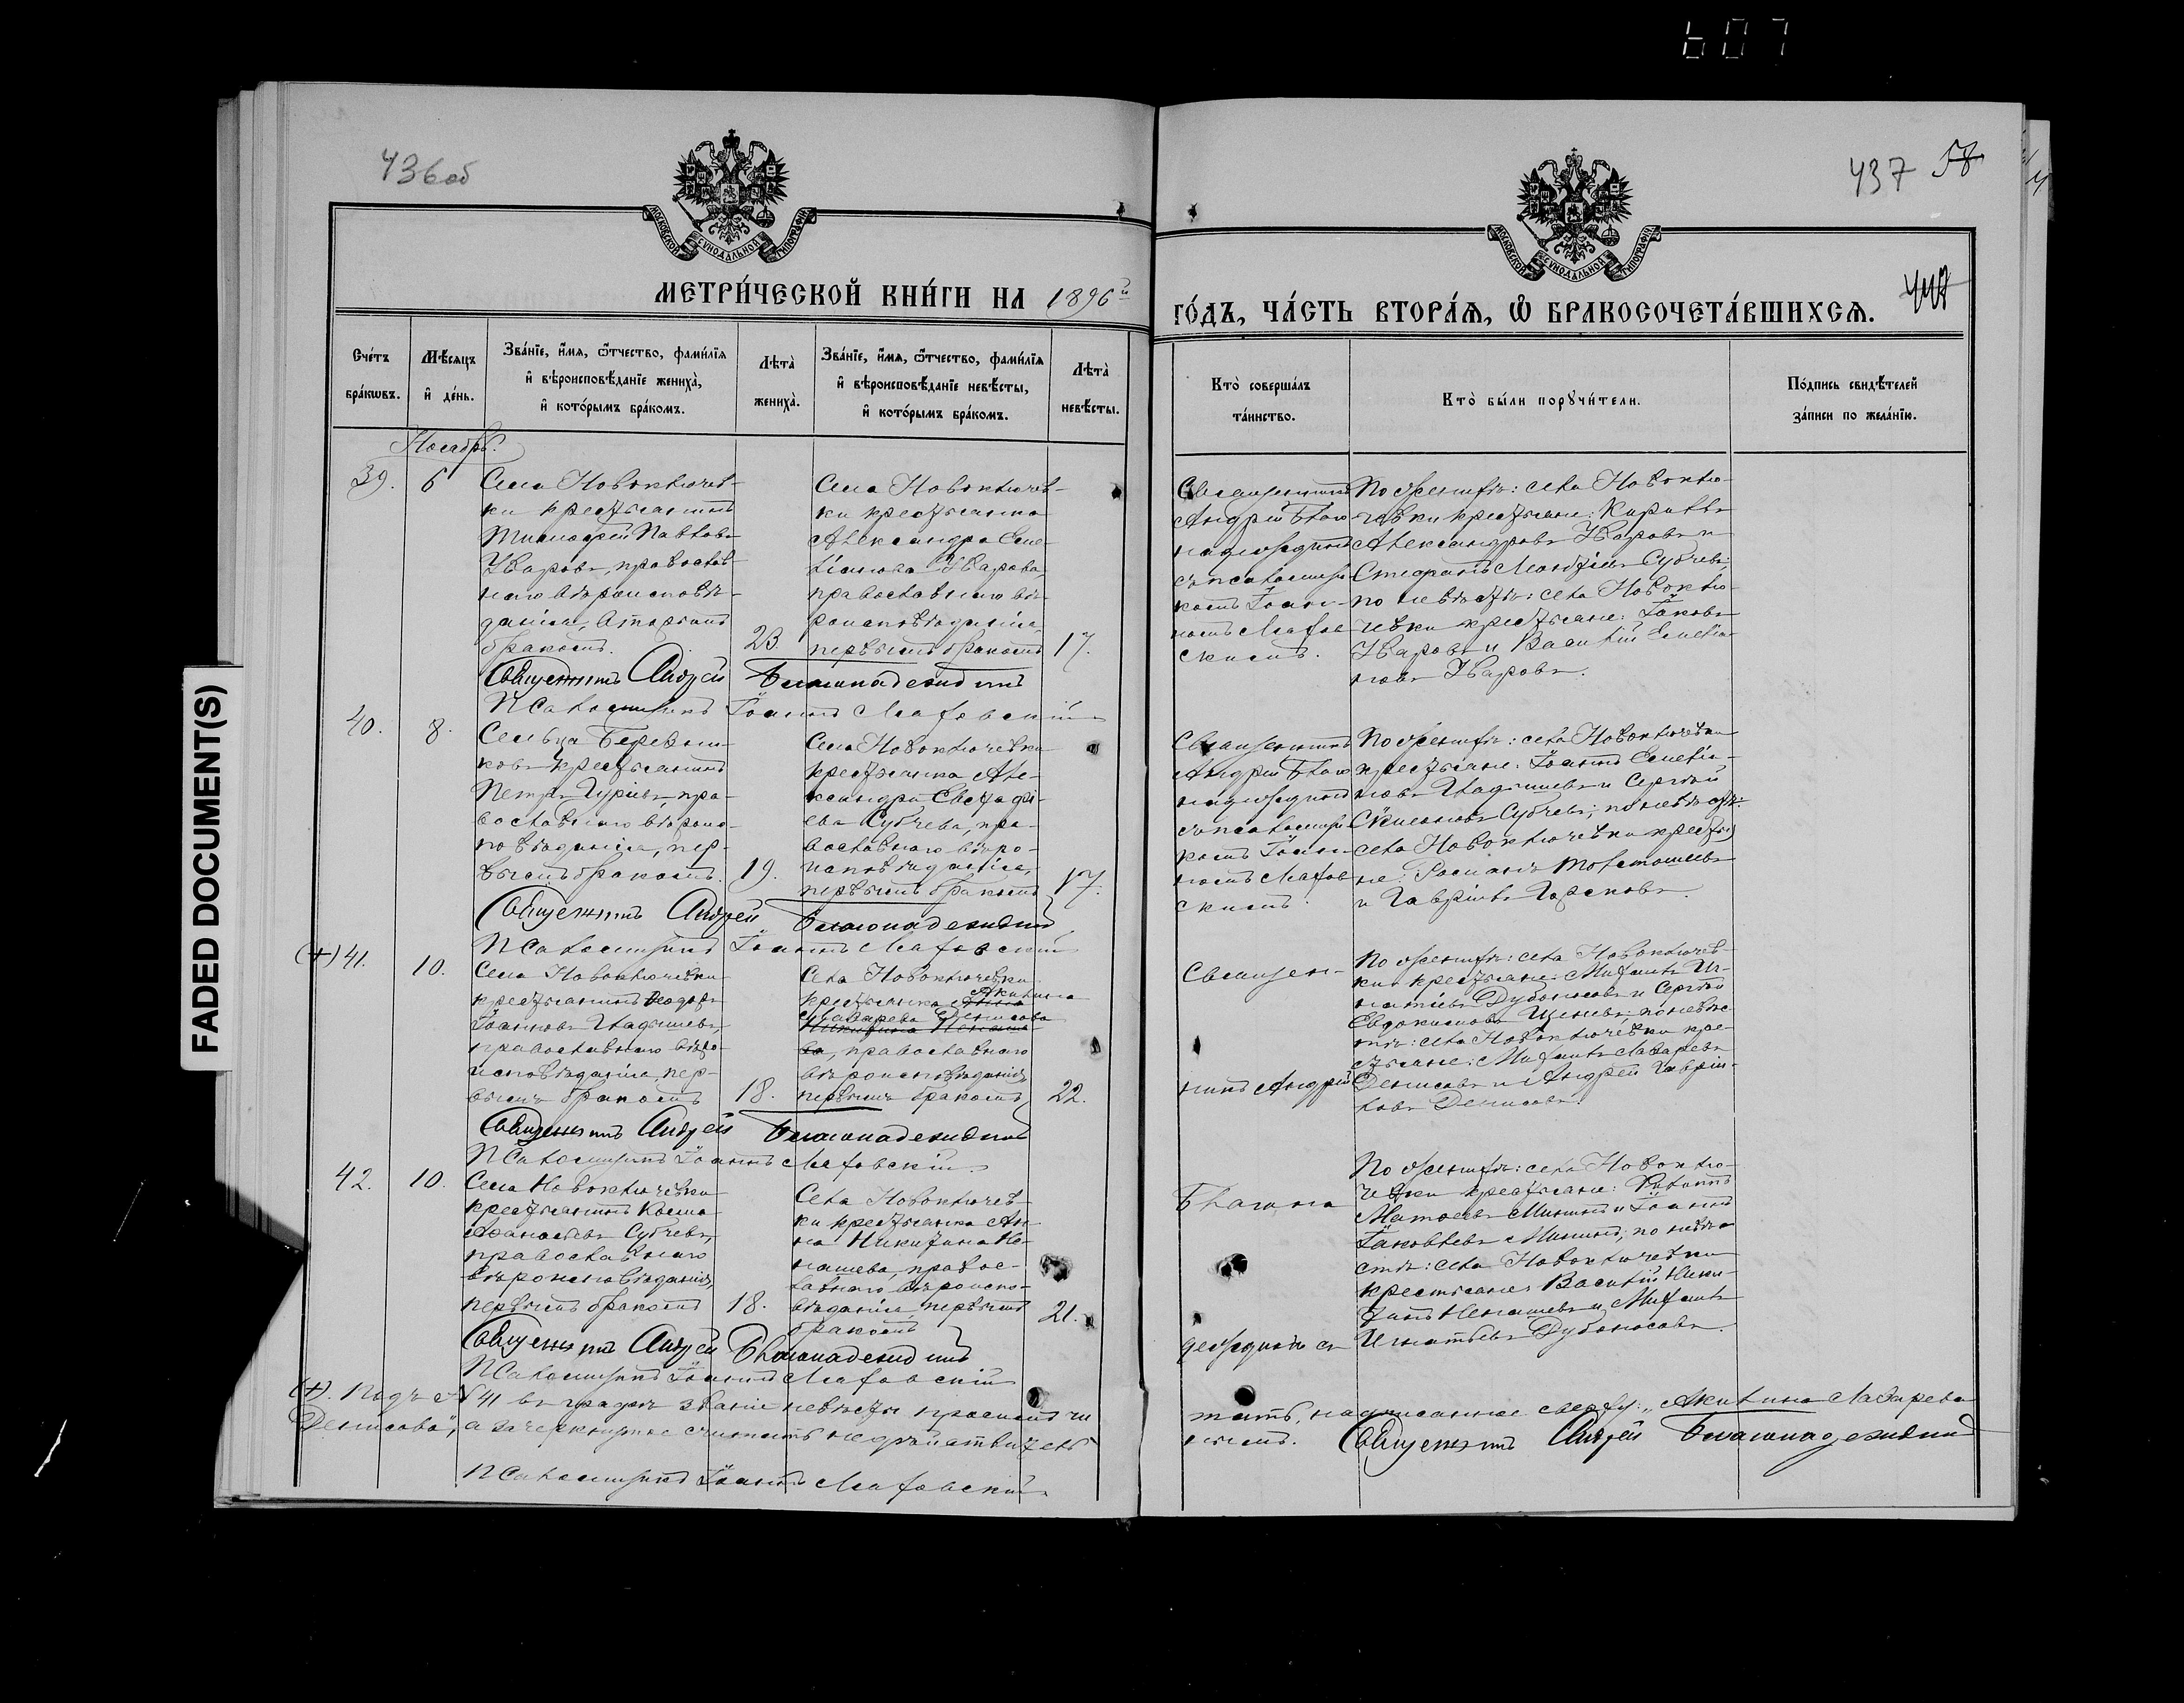 607
436об
437 58
МОСКОВСКОЙ СѴНОДАЛЬНОЙ ТИПОГРАФІИ
МОСКОВСКОЙ СѴНОДАЛЬНОЙ ТИПОГРАФІИ
МЕТРИ́ЧЕСКОЙ КНИ́ГИ НА 1896й
ГО́ДЪ, ЧА́СТЬ ВТОРА́Ѧ, Ѿ БРАКОСОЧЕТА́ВШИХСѦ.
Сче́тъ бра́кѡвъ.
Мѣ́сяцъ и҆ де́нь.
Зва́нїе, и҆́мя, ѻ҆́тчество, фами́лїя
и҆ вѣроисповѣ́данїе жениха̀,
и҆ кото́рымъ бра́комъ.
Лѣта̀ жениха̀.
Зва́нїе, и҆́мя, ѻ҆́тчество, фами́лїя
и҆ вѣроисповѣ́данїе невѣ́сты,
и҆ кото́рымъ бра́комъ.
Лѣта̀ невѣ́сты.
Кто̀ соверша́лъ та́инство.
Кто̀ бы́ли порꙋчи́тели.
По́дпись свидѣ́телей
за́писи по жела́нїю.
Ноябрь.
39.
6
Села Новоключев-
ки крестьянинъ
Тимофей Павловъ
Уваровъ, православ-
наго вѣроисповѣ-
данія, вторымъ
бракомъ.
23.
Села Новоключев-
ки крестьянка
Александра Еме-
ліанова Уварова,
православнаго вѣ-
роисповѣданія,
первымъ бракомъ
17.
Священникъ
Андрей Благо-
надеждинъ
съ псаломщи-
комъ Іоан-
номъ Маѳов-
скимъ.
По женихѣ: села Новоклю-
чевки крестьяне: Кириллъ
Александровъ Уваровъ и
Стефанъ Субчевъ;
по невѣстѣ: села Новоклю-
чевки крестьяне: Іаковъ
Уваровъ и Василій Емеліа-
новъ Уваровъ.
Священникъ Андрей Благонадеждинъ
Псаломщикъ Іоаннъ Маѳовскій
40.
8.
Сельца Березни-
ковъ крестьянинъ
Петръ Гурьевъ, пра-
вославнаго вѣроис-
повѣданія, пер-
вымъ бракомъ.
19.
Села Новоключевки
крестьянка Але-
ксандра Евстафі-
ева Субчева, пра-
вославнаго вѣро-
исповѣданія,
первымъ бракомъ
17.
Священникъ
Андрей Благо-
надеждинъ
съ псаломщи-
комъ Іоан-
номъ Маѳов-
скимъ.
По женихѣ: села Новоключевки
крестьяне: Іоаннъ Емеліа-
новъ Гвадяшевъ и Сергѣй
Субчевъ; по невѣстѣ:
села Новоключевки крестья-
не: Романъ
и Гавріилъ
Священникъ Андрей Благонадеждинъ
Псаломщикъ Іоаннъ Маѳовскій
(+) 41.
10.
Села Новоключевки
крестьянинъ Ѳеодоръ
Іоанновъ Гвадяшевъ,
православнаго вѣро-
исповѣданія, пер-
вымъ бракомъ
18.
Села Новоключевки
крестьянка Анна Акилина
Лазарева Денисова
Никитина Ненаше-
ва, православнаго
вѣроисповѣданія,
первымъ бракомъ
22.
Священ-
никъ Андрей
По женихѣ: села Новоключев-
ки крестьяне: Михаилъ Иг-
натьевъ Дубоносовъ и Сергѣй
Евдокимовъ по невѣс-
тѣ: села Новоключевки кре-
стьяне: Михаилъ Лазаревъ
Денисовъ и Андрей Гаврии-
ловъ Денисовъ.
Священникъ Андрей Благонадеждинъ
Псаломщикъ Іоаннъ Маѳовскій.
42.
10.
Села Новоключевки
крестьянинъ Косма
Аѳанасьевъ Субчевъ,
православнаго
вѣроисповѣданія,
первымъ бракомъ
18.
Села Новоключев-
ки крестьянка Ан-
на Никитина Не-
нашева, правос-
лавнаго вѣроиспо-
вѣданія, первымъ
бракомъ
21.
Благона
деждинъ съ
По женихѣ: села Новоклю-
чевки крестьяне: Филиппъ
Матвеевъ Мининъ и Іоаннъ
Іаковлевъ Мининъ; по невѣ-
стѣ: села Новоключевки
крестьяне Василій Ники-
тинъ Ненашевъ и Михаилъ
Игнатьевъ Дубоносовъ.
Священникъ Андрей Благонадеждинъ
Псаломщикъ Іоаннъ Маѳовскій
(+). Подъ №41 въ графѣ званіе невѣсты просимъ чи
тать, надписанное сверху: „Акилина Лазарева
Денисова“, а зачеркнутое считать недѣйствитель
нымъ. Священникъ Андрей Благонадеждинъ
Псаломщикъ Іоаннъ Маѳовскій
FADED DOCUMENT(S)